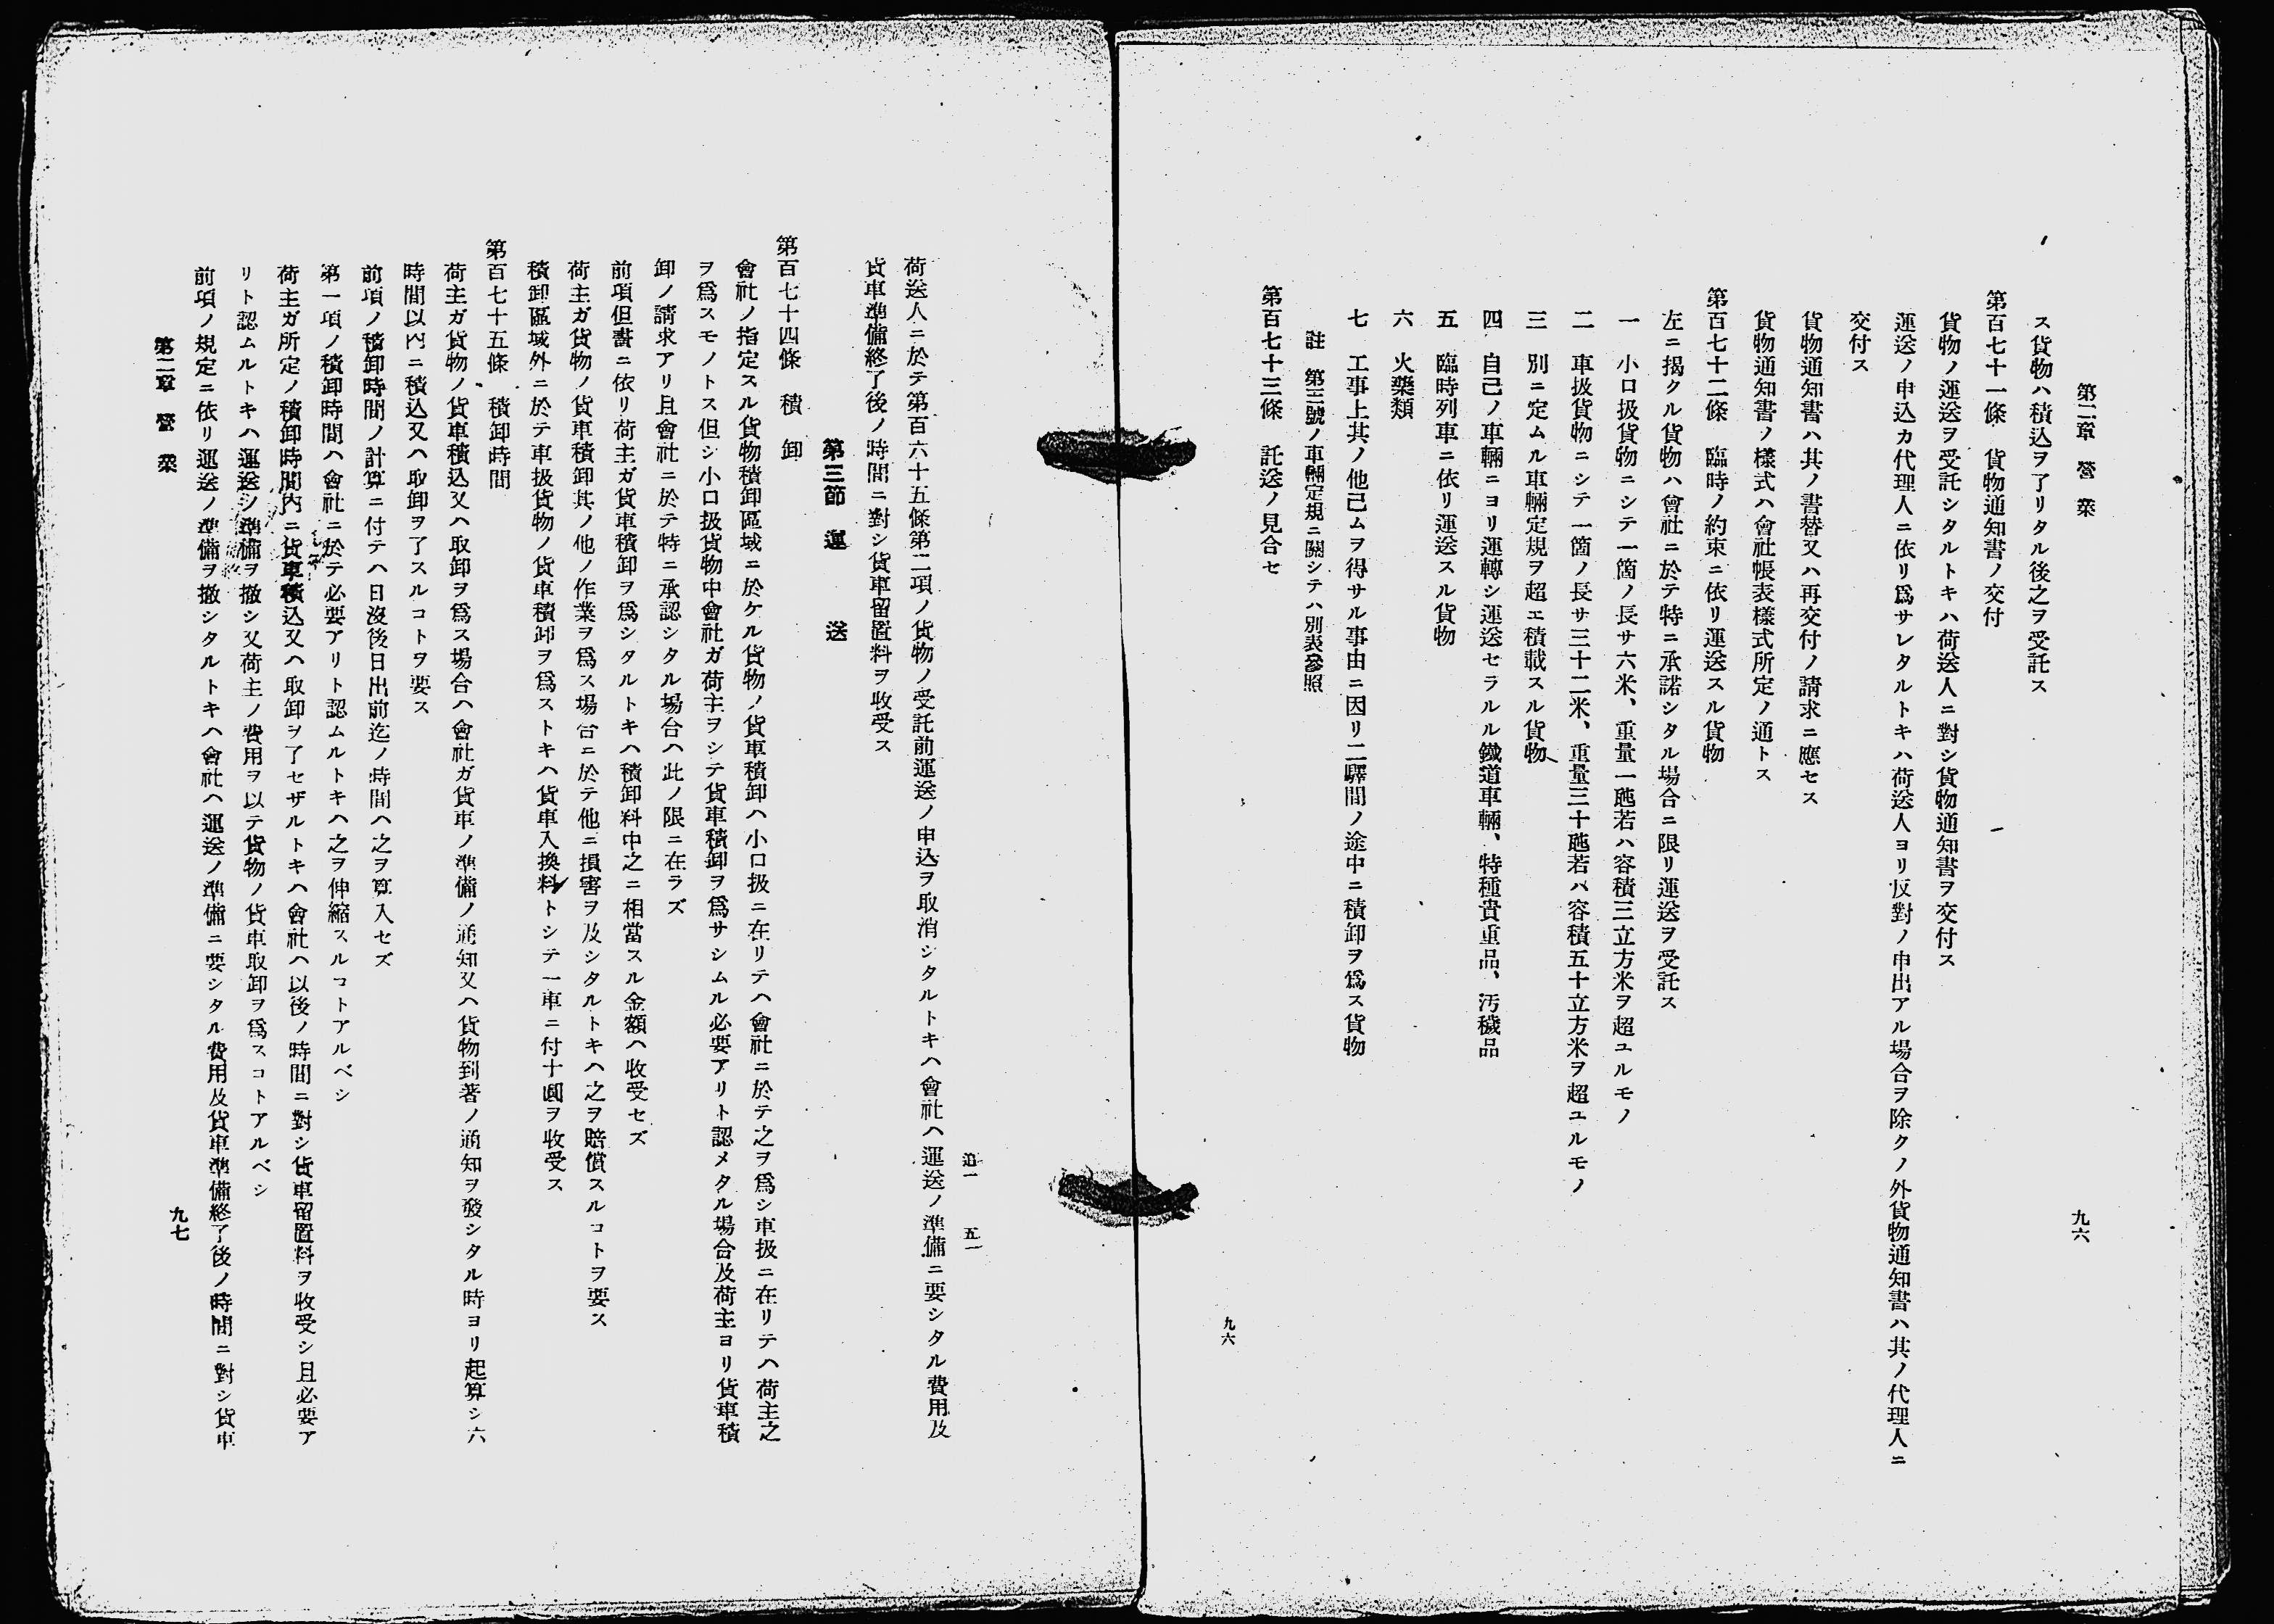 第二章　營　業
九六
ス貨物ハ積込ヲ了リタル後之ヲ受託ス
第百七十一條　貨物通知書ノ交付
貨物ノ運送ヲ受託シタルトキハ荷送人ニ對シ貨物通知書ヲ交付ス
運送ノ申込カ代理人ニ依リ爲サレタルトキハ荷送人ヨリ反對ノ申出アル場合ヲ除クノ外貨物通知書ハ其ノ代理人ニ
交付ス
貨物通知書ハ其ノ書替又ハ再交付ノ請求ニ應セス
貨物通知書ノ樣式ハ會社帳表樣式所定ノ通トス
第百七十二條　臨時ノ約束ニ依リ運送スル貨物
左ニ揭クル貨物ハ會社ニ於テ特ニ承諾シタル場合ニ限リ運送ヲ受託ス
一　小口扱貨物ニシテ一箇ノ長サ六米、重量一瓲若ハ容積三立方米ヲ超ユルモノ
二　車扱貨物ニシテ一箇ノ長サ三十二米、重量三十瓲若ハ容積五十立方米ヲ超ユルモノ
三　別ニ定ムル車輛定規ヲ超エ積載スル貨物
四　自己ノ車輛ニヨリ運轉シ運送セラルル鐵道車輛、特種貴重品、汚穢品
五　臨時列車ニ依リ運送スル貨物
六　火藥類
七　工事上其ノ他己ムヲ得サル事由ニ因リ二驛間ノ途中ニ積卸ヲ爲ス貨物
註　第三號ノ車輛定規ニ關シテハ別表參照
第百七十三條　託送ノ見合セ
九六
追一　五一
荷送人ニ於テ第百六十五條第二項ノ貨物ノ受託前運送ノ申込ヲ取消シタルトキハ會社ハ運送ノ準備ニ要シタル費用及
貨車準備終了後ノ時間ニ對シ貨車留置料ヲ收受ス
第三節　運　送
第百七十四條　積　卸
會社ノ指定スル貨物積卸區域ニ於ケル貨物ノ貨車積卸ハ小口扱ニ在リテハ會社ニ於テ之ヲ爲シ車扱ニ在リテハ荷主之
ヲ爲スモノトス但シ小口扱貨物中會社ガ荷主ヲシテ貨車積卸ヲ爲サシムル必要アリト認メタル場合及荷主ヨリ貨車積
卸ノ請求アリ且會社ニ於テ特ニ承認シタル場合ハ此ノ限ニ在ラズ
前項但書ニ依リ荷主ガ貨車積卸ヲ爲シタルトキハ積卸料中之ニ相當スル金額ハ收受セズ
荷主ガ貨物ノ貨車積卸其ノ他ノ作業ヲ爲ス場合ニ於テ他ニ損害ヲ及シタルトキハ之ヲ賠償スルコトヲ要ス
積卸區域外ニ於テ車扱貨物ノ貨車積卸ヲ爲ストキハ貨車入換料トシテ一車ニ付十圓ヲ收受ス
第百七十五條　積卸時間
荷主ガ貨物ノ貨車積込又ハ取卸ヲ爲ス場合ハ會社ガ貨車ノ準備ノ通知又ハ貨物到著ノ通知ヲ發シタル時ヨリ起算シ六
時間以內ニ積込又ハ取卸ヲ了スルコトヲ要ス
前項ノ積卸時間ノ計算ニ付テハ日沒後日出前迄ノ時間ハ之ヲ算入セズ
第一項ノ積卸時間ハ會社ニ於テ必要アリト認ムルトキハ之ヲ伸縮スルコトアルベシ
荷主ガ所定ノ積卸時間內ニ貨車積込又ハ取卸ヲ了セザルトキハ會社ハ以後ノ時間ニ對シ貨車留置料ヲ收受シ且必要ア
リト認ムルトキハ運送ノ準備ヲ撤シ又荷主ノ費用ヲ以テ貨物ノ貨車取卸ヲ爲スコトアルベシ
前項ノ規定ニ依リ運送ノ準備ヲ撤シタルトキハ會社ハ運送ノ準備ニ要シタル費用及貨車準備終了後ノ時間ニ對シ貨車
第二章　營　業
九七